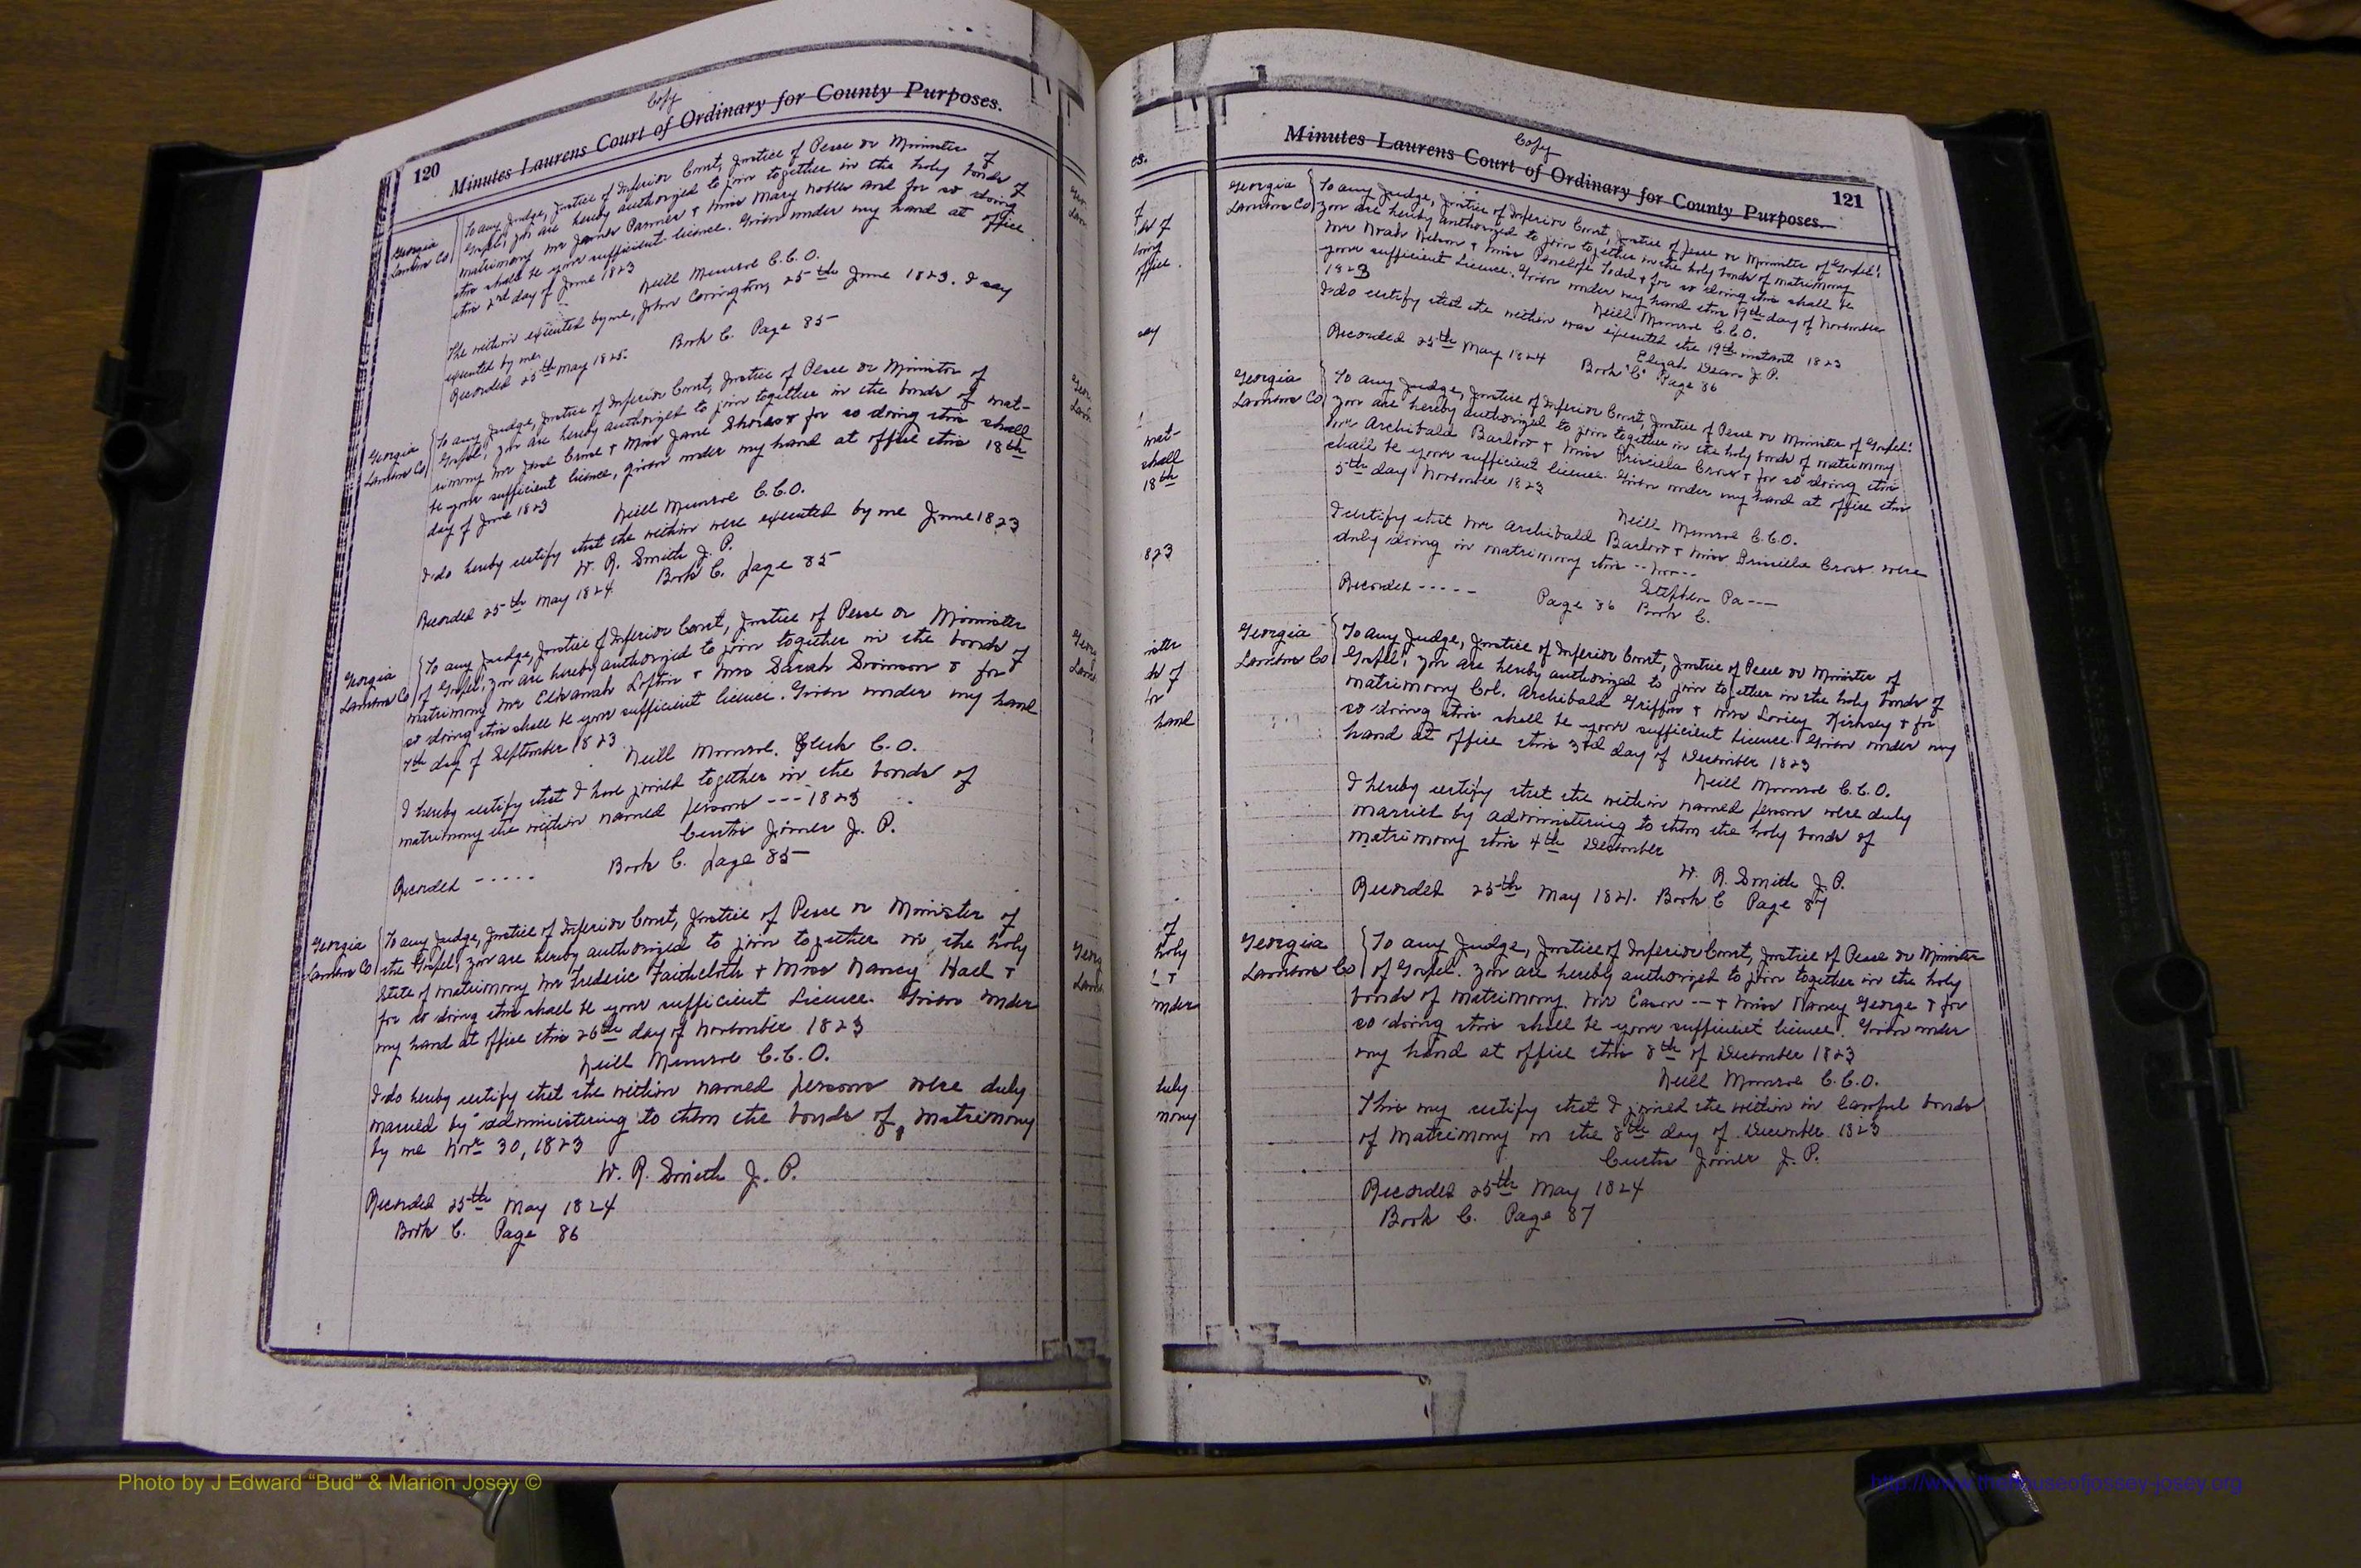 Copy
120 Minutes Laurens Court of Ordinary for County Purposes.
Georgia
Laurens Co
To any Judge, Justice of Inferior Court, Justice of Peace or Minister of
Gospel, you are hereby authorized to join together in the holy bonds of
matrimony Mr James Parmer & Miss Mary Nobles and for so doing
this shall be your sufficient licence. Given under my hand at office
this 2nd day of June 1823
Neill Munroe C.C.O.
The within executed by me, John Covington, 25th June 1823. I say
executed by me.
Recorded 25th May 1825. Book C. Page 85
Georgia
Laurens Co
To any Judge, Justice of Inferior Court, Justice of Peace or Minister of
Gospel, you are hereby authorized to join together in the bonds of mat-
rimony Mr Jane & Miss Jane Shores & for so doing this shall
be your sufficient licence, given under my hand at office this 18th
day of June 1823
Neill Munroe C.C.O.
I do hereby certify that the within were executed by me June 1823
W. R. Smith J. P.
Recorded 25th May 1824 Book C. Page 85
Georgia
Laurens Co
To any Judge, Justice of Inferior Court, Justice of Peace or Minister
of Gospel, you are hereby authorized to join together in the bonds of
matrimony Mr Elkanah Loftin & Mrs Sarah Swinson & for
so doing this shall be your sufficient licence. Given under my hand
7th day of September 1823
Neill Munroe, Clerk C.O.
I hereby certify that I have joined together in the bonds of
matrimony the within named persons --- 1823
Curtis Joiner J. P.
Recorded ----- Book C. Page 85
Georgia
Laurens Co
To any Judge, Justice of Inferior Court, Justice of Peace or Minister of
the Gospel, you are hereby authorized to join together in the holy
state of matrimony Mr Frederic Faithcloth & Miss Nancy Hall &
for so doing this shall be your sufficient Licence. Given under
my hand at office this 26th day of November 1823
Neill Munroe C.C.O.
I do hereby certify that the within named persons were duly
married by administering to them the bonds of matrimony
by me Novr 30, 1823
W. R. Smith J. P.
Recorded 25th May 1824
Book C. Page 86
Copy
Minutes Laurens Court of Ordinary for County Purposes. 121
Georgia
Laurens Co
To any Judge, Justice of Inferior Court, Justice of Peace or Minister of Gospel,
you are hereby authorized to join together in the holy bonds of matrimony
Mr Noah Nelson & Miss Penelope Todd & for so doing this shall be
your sufficient Licence. Given under my hand this 19th day of November
1823
Neill Munroe C.C.O.
I do certify that the within was executed the 19th instant 1823
Elijah Dean J. P.
Recorded 25th May 1824 Book "C" Page 86
Georgia
Laurens Co
To any Judge, Justice of Inferior Court, Justice of Peace or Minister of Gospel:
you are hereby authorized to join together in the holy bonds of matrimony
Mr Archibald Barlow & Miss Prisciela Cross & for so doing this
shall be your sufficient licence. Given under my hand at office this
5th day November 1823
Neill Munroe C.C.O.
I certify that Mr Archibald Barlow & Miss Prisciela Cross were
duly joing in matrimony this -- Nov---
Stephen Pa---
Recorded ----- Page 86 Book C.
Georgia
Laurens Co
To any Judge, Justice of Inferior Court, Justice of Peace or Minister of
Gospel, you are hereby authorized to join together in the holy bonds of
matrimony Col. Archibald Griffin & Mrs Loviey Kirksey & for
so doing this shall be your sufficient licence. Given under my
hand at office this 3rd day of December 1823
Neill Munroe C.C.O.
I hereby certify that the within named persons were duly
married by administering to them the holy bonds of
matrimony this 4th December
W. R. Smith J. P.
Recorded 25th May 1821. Book C Page 87
Georgia
Laurens Co
To any Judge, Justice of Inferior Court, Justice of Peace or Minister
of Gospel. You are hereby authorized to join together in the holy
bonds of matrimony. Mr Eason -- & Miss Nancy George & for
so doing this shall be your sufficient licence. Given under
my hand at office this 8th of December 1823
Neill Munroe C.C.O.
This my certify that I joined the within in lawful bonds
of matrimony on the 8th day of December 1823
Curtis Joiner J. P.
Recorded 25th May 1824
Book C. Page 87
Photo by J Edward “Bud” & Marion Josey ©
http://www.thehouseofjossey-josey.org